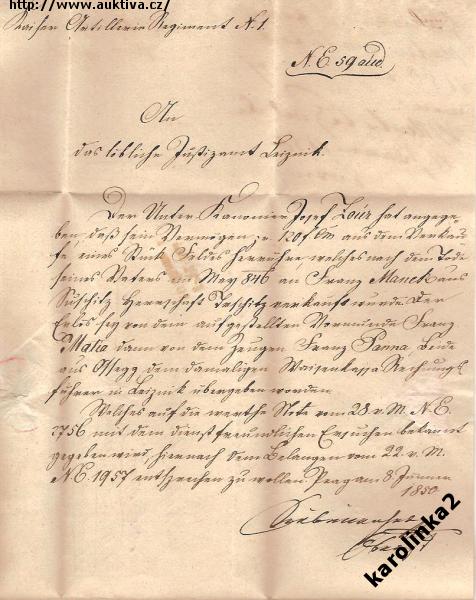 http://www.auktiva.cz/
Kaiser Artillerie Regiment N. 1.
N. E. 59 
An
das löbliche Justizamt Leiznik.
Der Unter Kanonier Josef Zoúr hat angege-
ben, daß sein Vermögen pr 120 f CM aus dem Verkau-
fe eines Stück Feldes herrühre, welches nach dem Tode
seines Vaters im May 846 an Franz Manek aus
Herrschaft verkauft wurde. Der
Erlös sey von dem aufgestellten Vormunde Franz
Malia dann von dem Zeugen Franz Panna, beide
aus Ossegg dem damaligen Waisenkassa Rechnungs-
führer in Leiznik übergeben worden.
Welches auf die werthe Note vom 28 v. M. N. E.
1756 mit dem dienstfreundlichen Ersuchen bekannt
gegeben wird, hiernach dem Belangen vom 22 v. M.
N. E. 1957 entsprechen zu wollen. Prag am 8 Jänner
1850
karolinka2